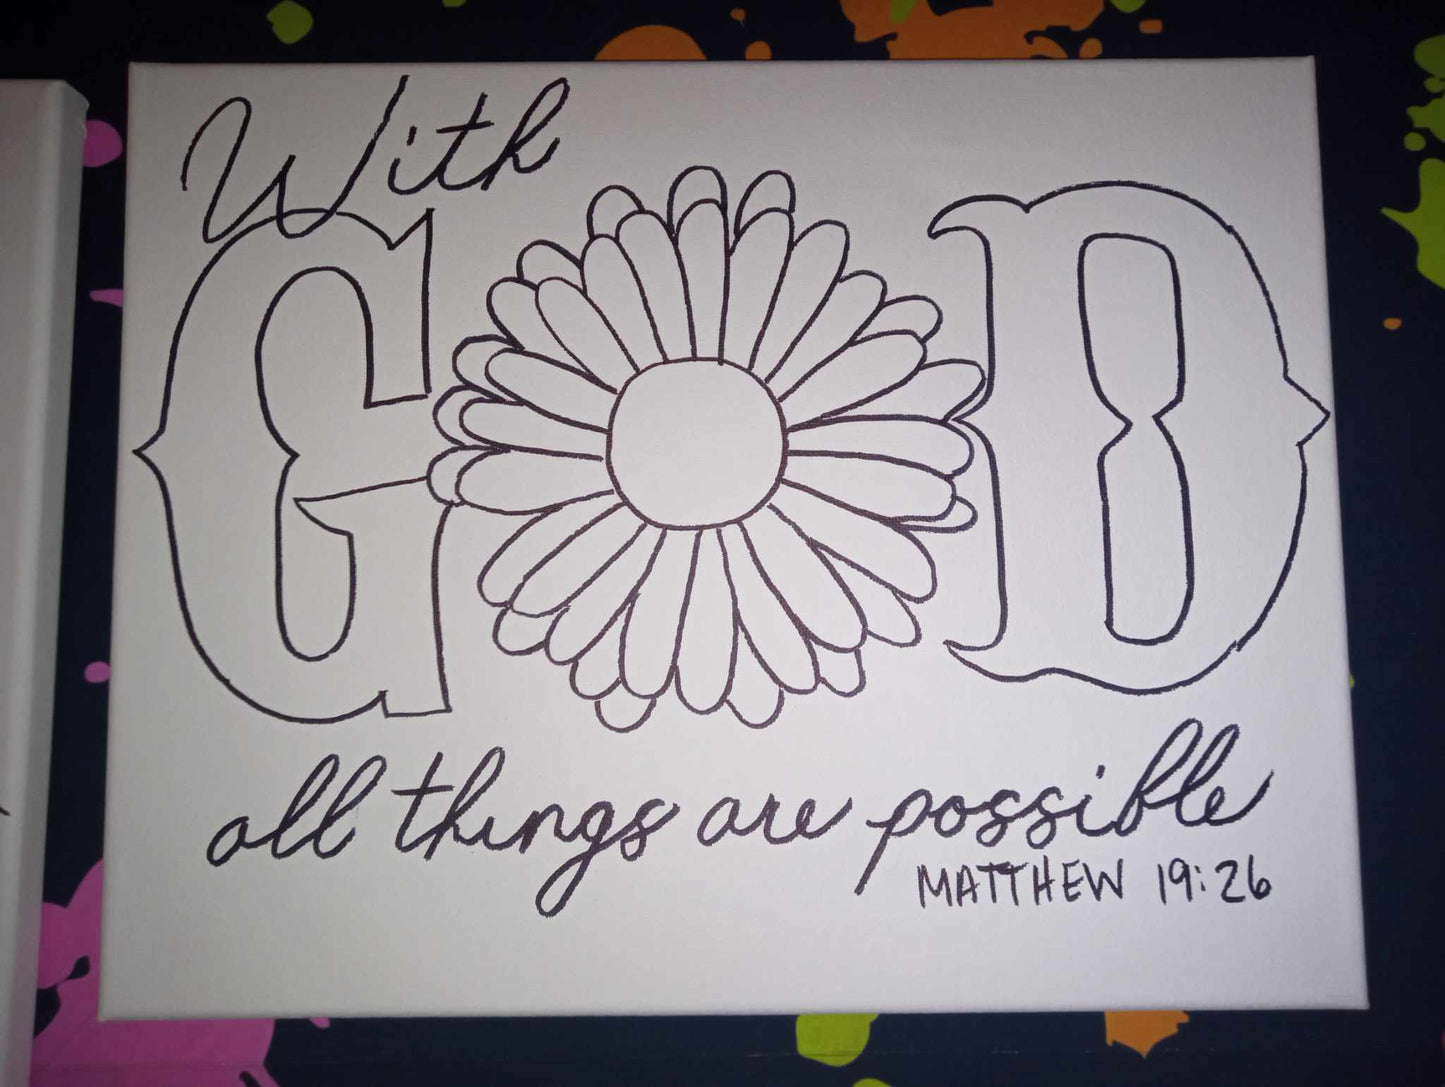 With
GOD
all things are possible
MATTHEW 19:26